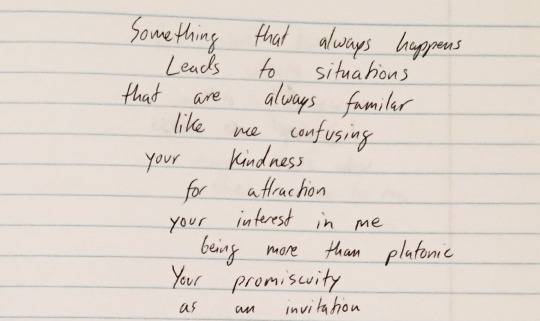 Something that always happens
Leads to situations
that are always familar
like me confusing
your kindness
for attraction
your interest in me
being more than platonic
Your promiscuity
as an invitation